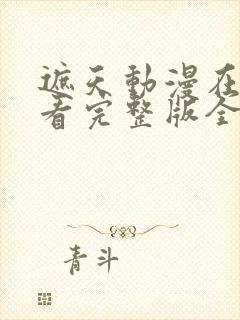 遮天動漫在
看完整版全
青斗